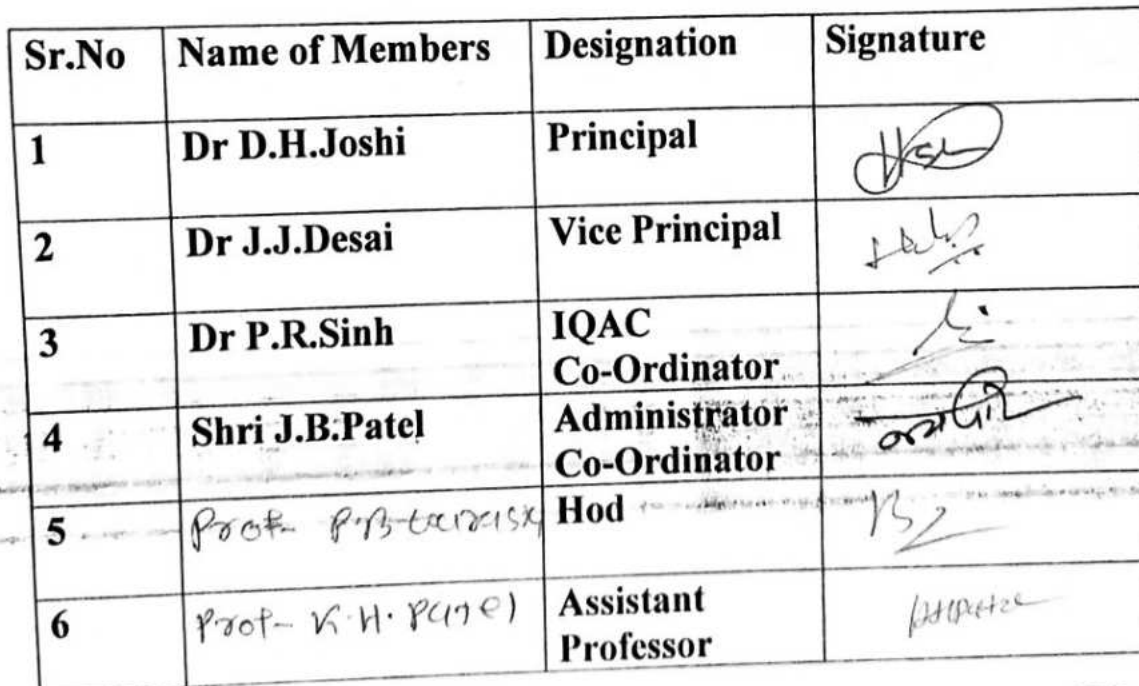 Sr.No Name of Members Designation Signature
1 Dr D.H.Joshi Principal
2 Dr J.J.Desai Vice Principal
3 Dr P.R.Sinh IQAC
Co-Ordinator
4 Shri J.B.Patel Administrator
Co-Ordinator
5 Prof- P.B. Hod
6 Prof- K.H. Patel Assistant
Professor